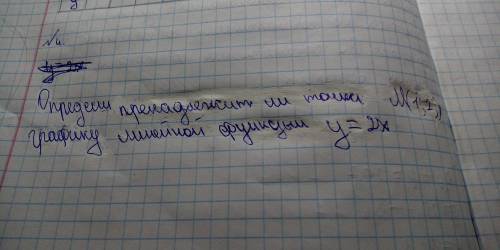 №4.
y=2x
Определи пренадлежит ли точка М(1;2)
графику линейной функции y=2x